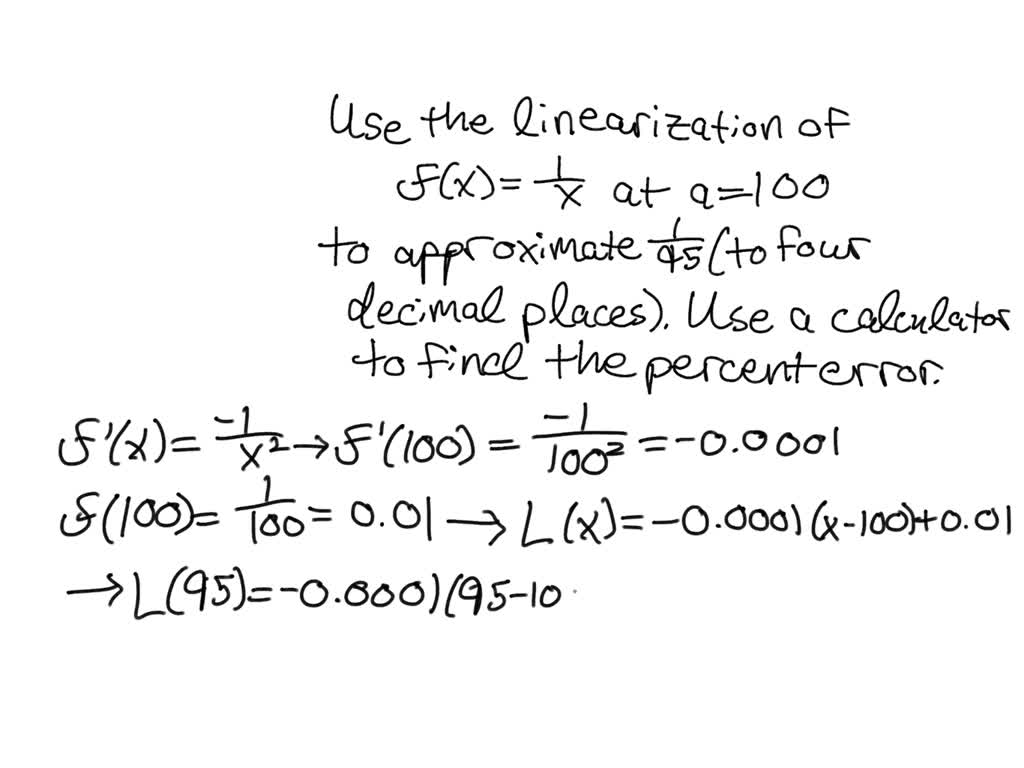 Use the linearization of
f(x) = 1/x at a = 100
to approximate 1/95 (to four
decimal places). Use a calculator
to find the percent error.
f'(x) = -1/x² → f'(100) = -1/100² = -0.0001
f(100) = 1/100 = 0.01 → L(x) = -0.0001(x-100)+0.01
→ L(95) = -0.0001(95-10